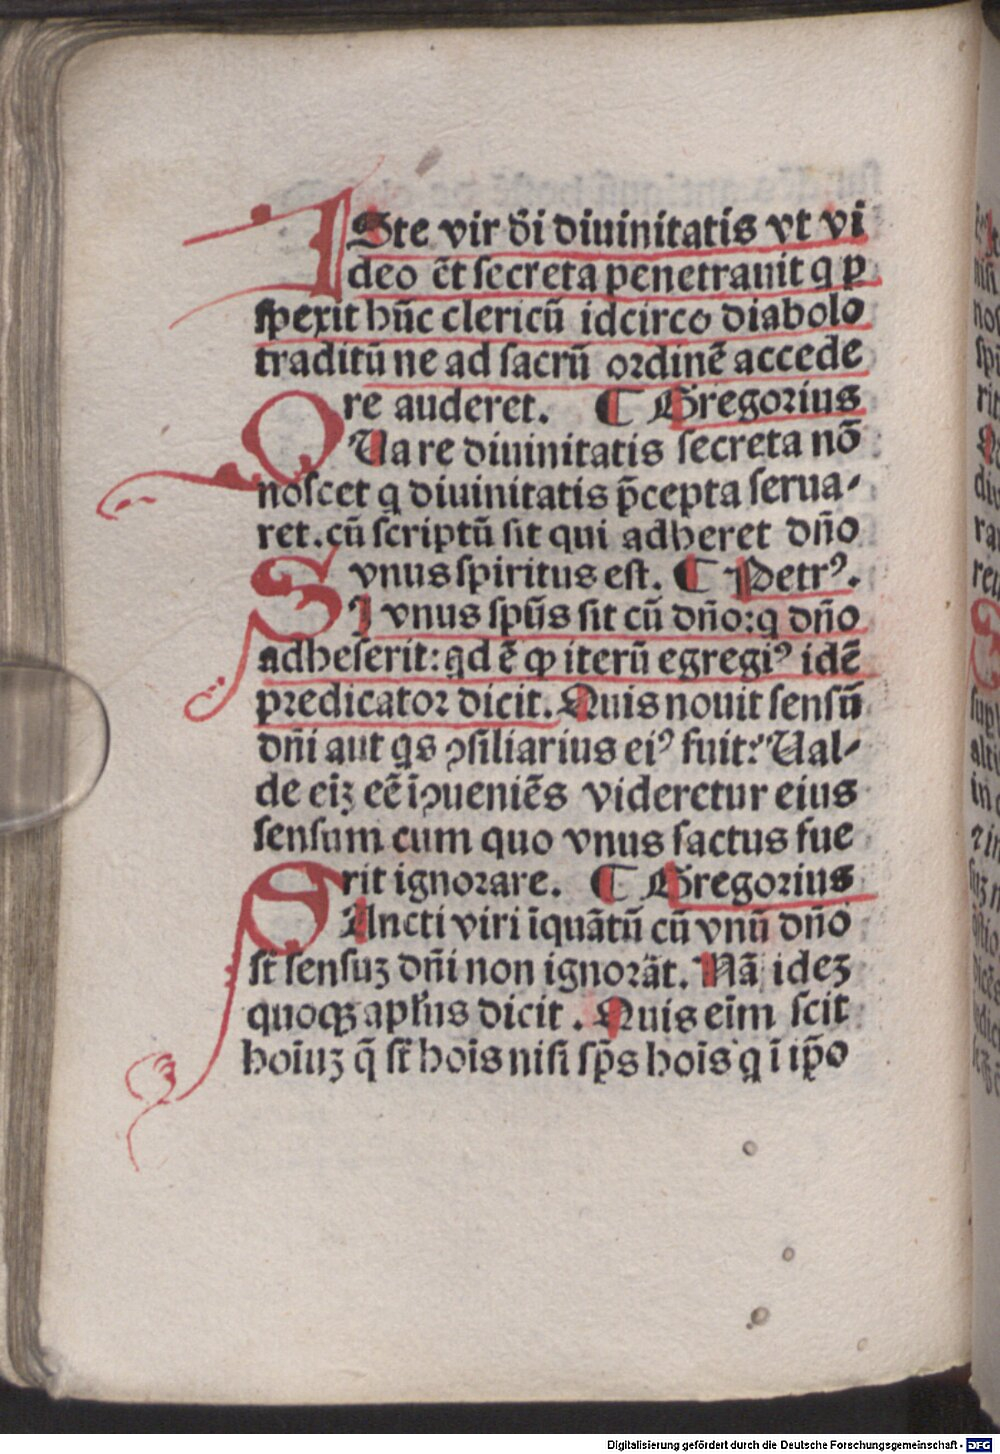 ISte vir dñi diuinitatis vt vi
deo ẽt secreta penetrauit q ꝑ
spexit hũc clericũ idcirco diabolo
traditũ ne ad sacrũ ordinẽ accede
re auderet. ¶ Gregorius
QUare diuinitatis secreta nõ
noscet q diuinitatis p̃cepta serua-
ret. cũ scriptũ sit qui adheret dño
vnus spiritus est. ¶ Petrꝰ.
SI vnus spũs sit cũ dño: q dño
adheserit: qd ẽ ꝙ iterũ egregiꝰ idẽ
predicator dicit. Quis nouit sensũ
dñi aut qs ꝯsiliarius eiꝰ fuit: Ual-
de eiꝫ eẽ iꝯueniẽs videretur eius
sensum cum quo vnus factus fue
rit ignorare. ¶ Gregorius
SAncti viri ĩquãtũ cũ vnũ dño
st̃ sensuꝫ dñi non ignorãt. Nã ideꝫ
quoqꝫ apłus dicit. Quis eĩm scit
hoĩuꝫ q̃ st̃ hoĩs nisi sp̃s hoĩs q ĩ ip̃o
Digitalisierung gefördert durch die Deutsche Forschungsgemeinschaft - DFG